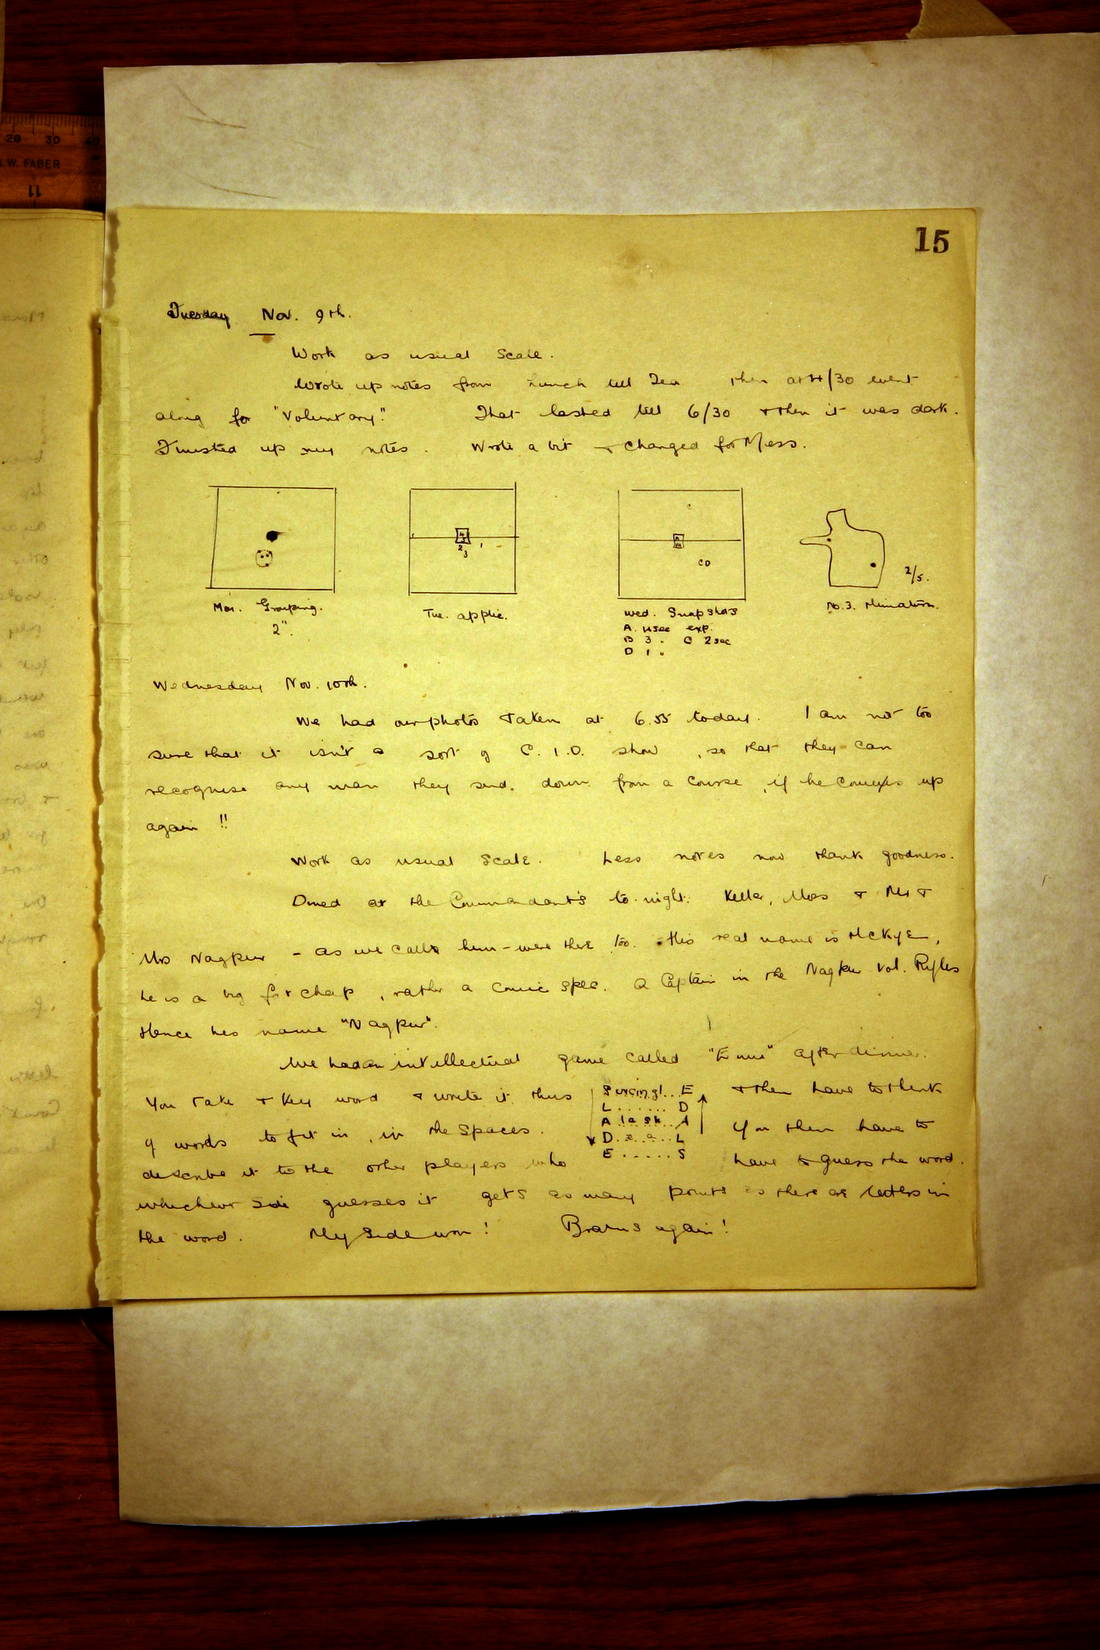 20 30 40
W. FABER
11
15
Tuesday Nov. 9th.
Work as usual Scale.
Wrote up notes from Lunch till Tea then at 4/30 went
along for "Voluntary". That lasted till 6/30 & then it was dark.
Finished up my notes. Wrote a bit & changed for Mess.
2 3 1
CO
2/5.
Mon. Grouping.
2".
Tue. applic.
Wed. Snapshots
A. 4 sec exp.
B 3 " C 2 sec
D 1 "
No. 3. Elimination.
Wednesday Nov. 10th.
We had our photos taken at 6.55 today. I am not too
sure that it isn't a sort of C.I.D. show, so that they can
recognise any man they send down from a course, if he comes up
again !!
Work as usual Scale. Less notes now thank goodness.
Dined at the Commandant's to-night. Keller, Moss & Mr &
Mrs Nagpur - as we call him - were there too. His real name is McKye,
he is a big fat chap, rather a comic spec. A Captain in the Nagpur Vol. Rifles
Hence his name "Nagpur".
We had an intellectual game called after dinner.
You take a key word & write it thus
S urcingl.. E
L ....... D
A lask.. A
D .. e.a.. L
E ..... S
& then have to think
of words to fit in, in the Spaces. You then have to
describe it to the other players who have to guess the word.
whichever side guesses it gets as many points as there are letters in
the word. My Side won! Brains again!